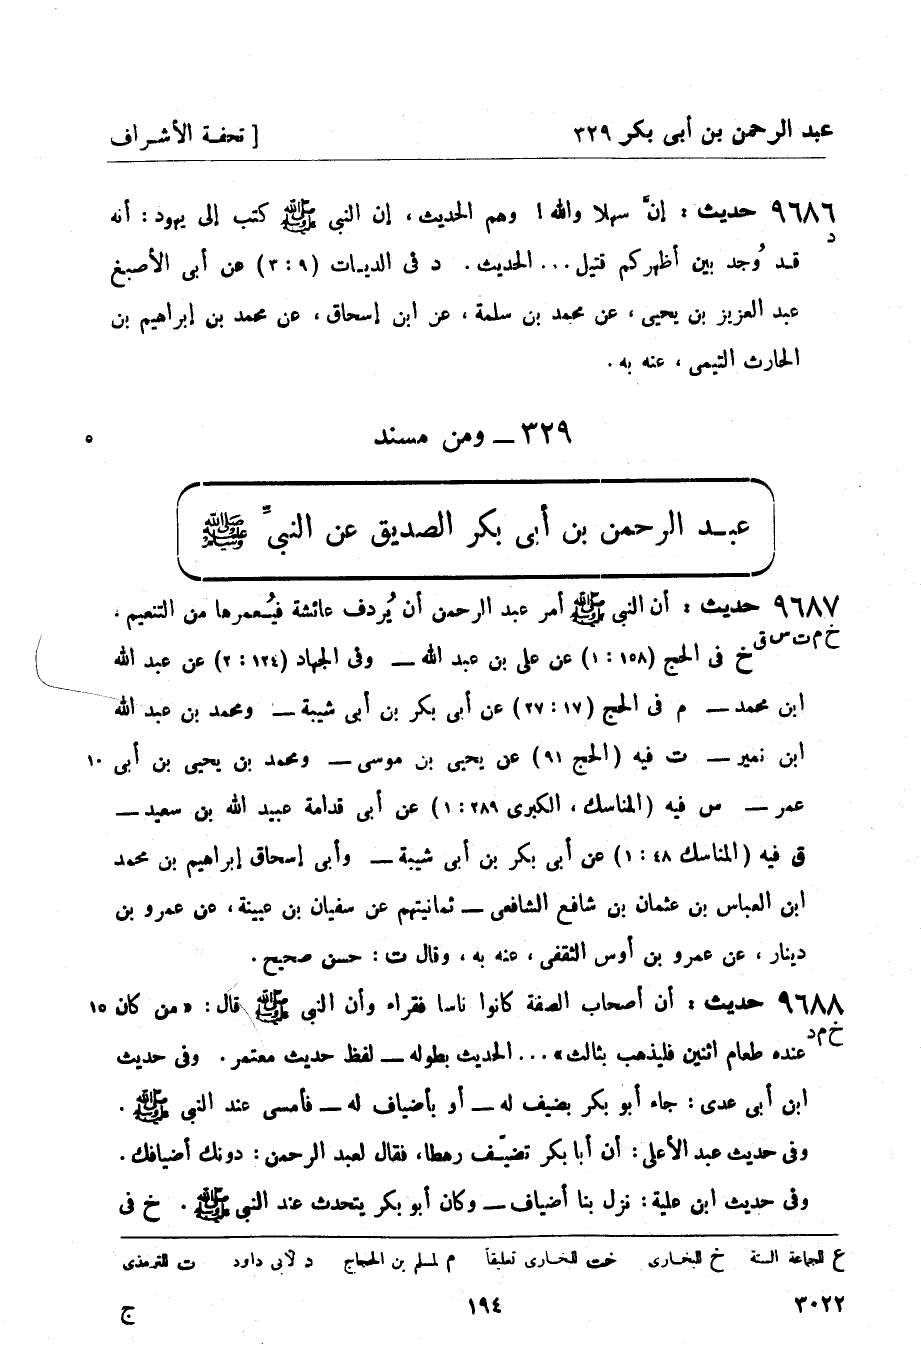 عبد الرحمن بن أبى بكر ٣٢٩ [ تحفة الأشراف
٩٦٨٦ حديث : إنَّ سهلا والله ! وهم الحديث، إن النبي ﷺ كتب إلى يهود : أنه
د
قد وُجد بين أظهركم قتيل ... الحديث . د فى الديات (٩ : ٣) عن أبى الأصبغ
عبد العزيز بن يحيى ، عن محمد بن سلمة ، عن ابن إسحاق ، عن محمد بن إبراهيم بن
الحارث التيمى ، عنه به .
٣٢٩ ــ ومن مسند ٥
عبد الرحمن بن أبى بكر الصديق عن النبيّ ﷺ
٩٦٨٧ حديث : أن النبي ﷺ أمر عبد الرحمن أن يُردف عائشة فيُعمرها من التنعيم ،
خ م ت س ق
خ فى الحج (١٥٨ : ١) عن على بن عبد الله ــ وفى الجهاد (١٢٤ : ٢) عن عبد الله
ابن محمد ــ م فى الحج (١٧ : ٢٧) عن أبى بكر بن أبى شيبة ــ ومحمد بن عبد الله
ابن نمير ــ ت فيه (الحج ٩١) عن يحيى بن موسى ــ ومحمد بن يحيى بن أبى ١٠
عمر ــ س فيه (المناسك ، الكبرى ٢٨٩ : ١) عن أبى قدامة عبيد الله بن سعيد ــ
ق فيه (المناسك ٤٨ : ١) عن أبى بكر بن أبى شيبة ــ وأبى إسحاق إبراهيم بن محمد
ابن العباس بن عثمان بن شافع الشافعى ــ ثمانيتهم عن سفيان بن عيينة، عن عمرو بن
دينار ، عن عمرو بن أوس الثقفى ، عنه به ، وقال ت : حسن صحيح .
٩٦٨٨ حديث : أن أصحاب الصفة كانوا ناسا فقراء وأن النبي ﷺ قال : « من كان ١٥
خ م د
عنده طعام اثنين فليذهب بثالث » ... الحديث بطوله ــ لفظ حديث معتمر . وفى حديث
ابن أبى عدى : جاء أبو بكر بضيف له ــ أو بأضياف له ــ فأمسى عند النبي ﷺ .
وفى حديث عبد الأعلى : أن أبا بكر تضيّف رهطا، فقال لعبد الرحمن : دونك أضيافك .
وفى حديث ابن علية : نزل بنا أضياف ــ وكان أبو بكر يتحدث عند النبي ﷺ . خ فى
ع للجماعة الستة خ للبخارى خت للبخارى تعليقاً م لمسلم بن الحجاج د لأبى داود ت للترمذى
٣٠٢٢ ١٩٤ ج